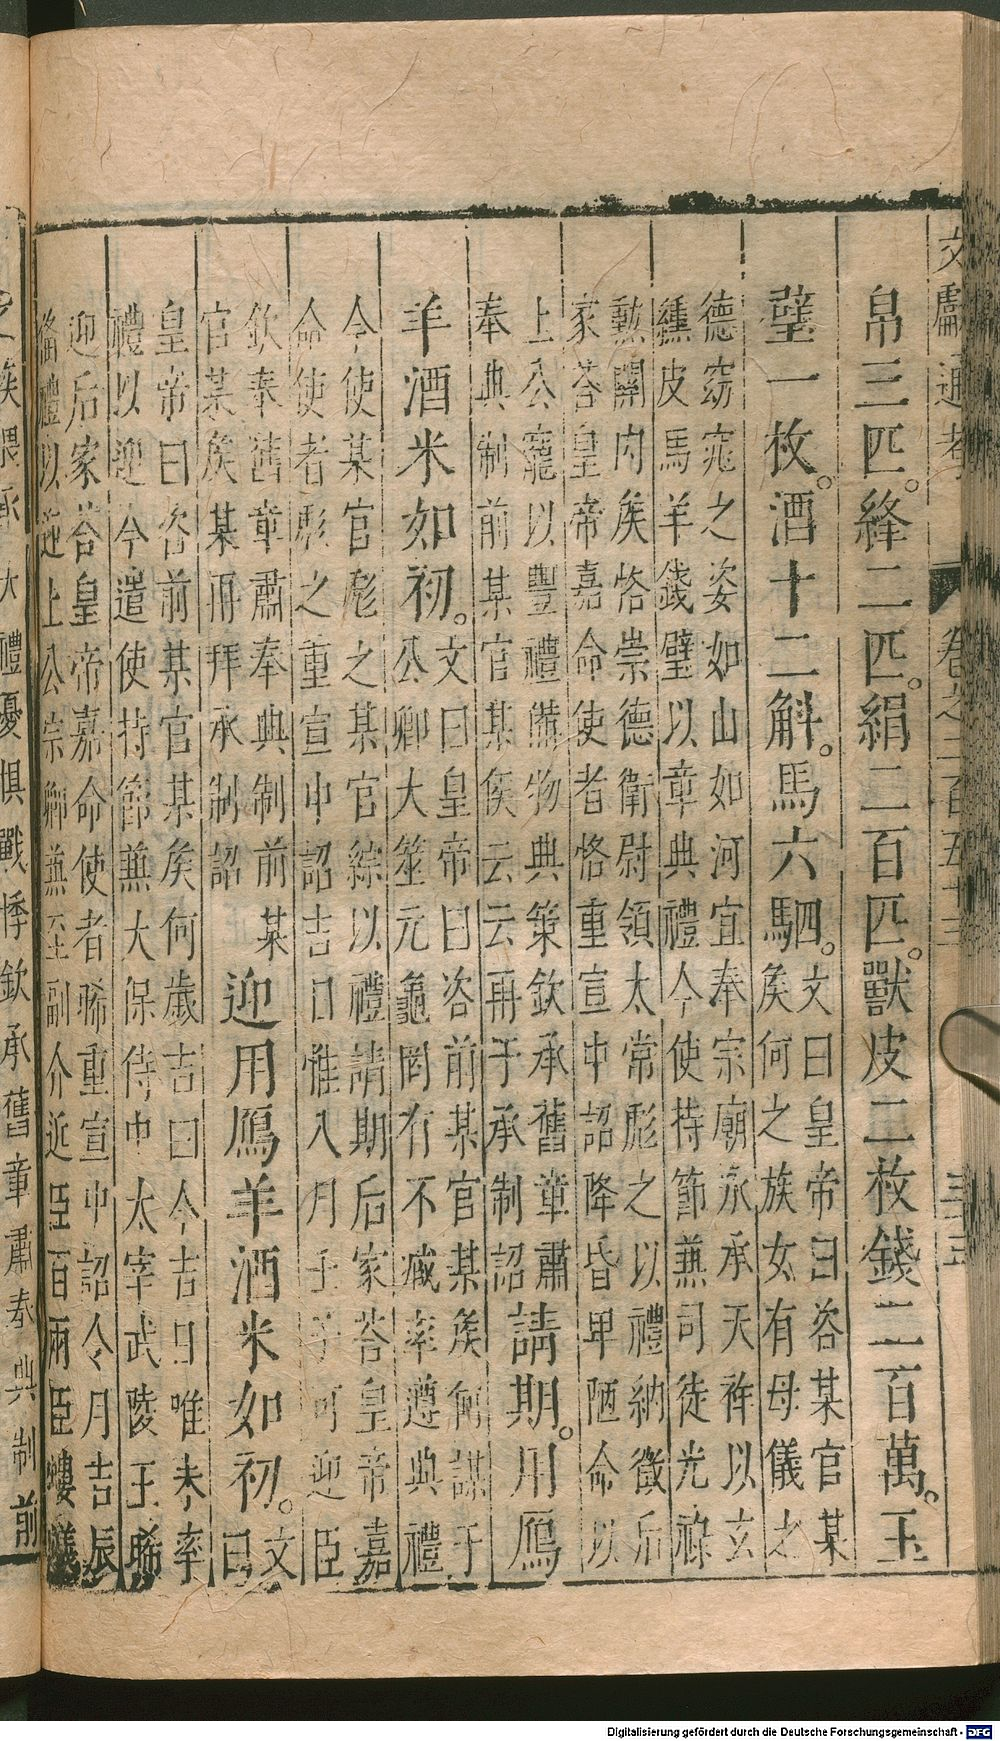 文獻通考 卷之二百五十三
帛三匹。絳二匹。絹二百匹。獸皮二枚錢二百萬。玉
璧一枚。酒十二斛。馬六駟。
文曰皇帝曰咨某官某
矦何之族女有母儀之
德窈窕之姿如山如河宜奉宗廟永承天祚以玄
纁皮馬羊錢璧以章典禮今使使持節兼司徒光祿
勲關內矦恪崇德衛尉領太常彪之以禮納徵后
家荅皇帝嘉命使者恪重宣中詔降昏卑陋命以
上公寵以豐禮備物典策欽承舊章肅
奉典制前某官某矦云云再于承制詔
請期。用鴈
羊酒米如初。
文曰皇帝曰咨前某官某矦何謀于
公卿大筮元龜罔有不臧率遵典禮
今使某官彪之某官綜以禮請期后家荅皇帝嘉
命使者彪之重宣中詔吉日惟八月壬子可迎臣
欽奉舊章肅奉典制前某
官某矦某再拜承制詔
迎用鴈羊酒米如初。
文
曰
皇帝曰咨前某官某矦何歲吉曰今吉日唯未率
禮以迎今遣使持節兼大保侍中太宰武陵王晞
迎后家荅皇帝嘉命使者晞重宣中詔令月吉辰
備禮以迎上公宗卿兼至副介近臣百兩臣螻蟻
之族猥承大禮憂惧戰悸欽承舊章肅奉典制前
Digitalisierung gefördert durch die Deutsche Forschungsgemeinschaft - DFG